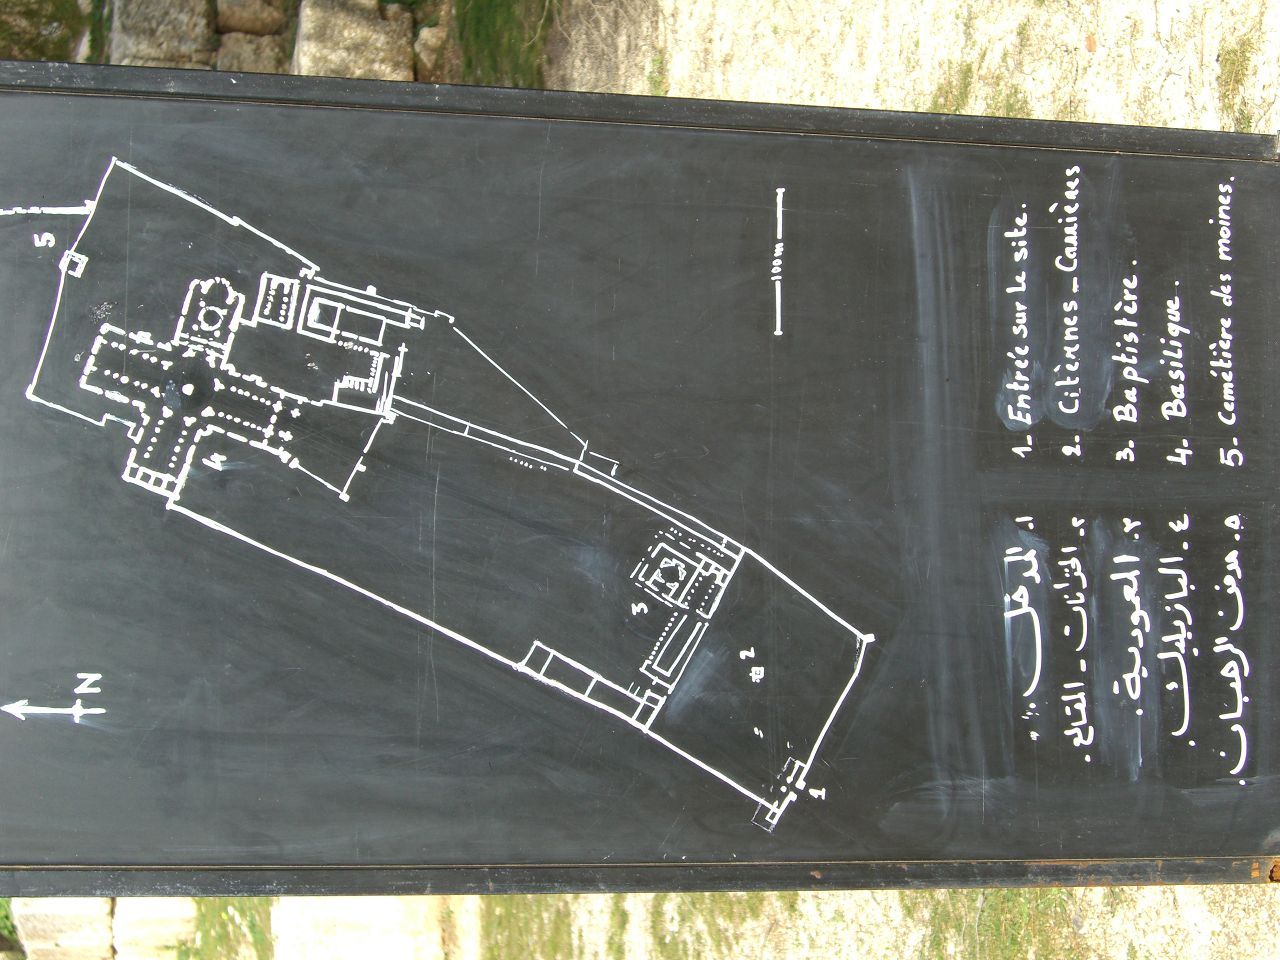 5
4
3
2
1
N
100m
1- Entrée sur le site.
2. Citèrnes - Carrières
3. Baptistère.
4. Basilique.
5. Cemétière des moines.
١. المدخل
٢. الخزانات - المقالع.
٣. المعمودية.
٤. البازيليك.
٥. مدفن الرهبان.